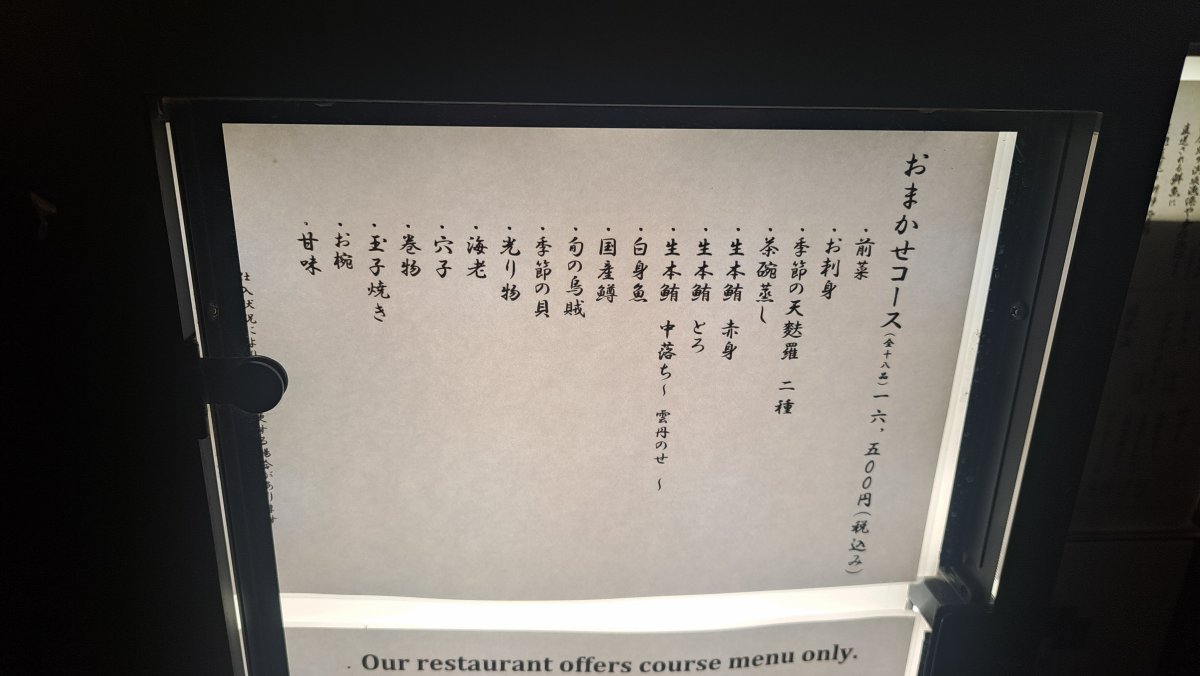 おまかせコース(全十八品)一六，五００円(税込み)
・前菜
・お刺身
・季節の天麩羅 二種
・茶碗蒸し
・生本鮪 赤身
・生本鮪 とろ
・生本鮪 中落ち～ 雲丹のせ ～
・白身魚
・国産鱒
・旬の烏賊
・季節の貝
・光り物
・海老
・穴子
・巻物
・玉子焼き
・お椀
・甘味
仕入状況により
場合があります
. Our restaurant offers course menu only.
直送される鮮魚に